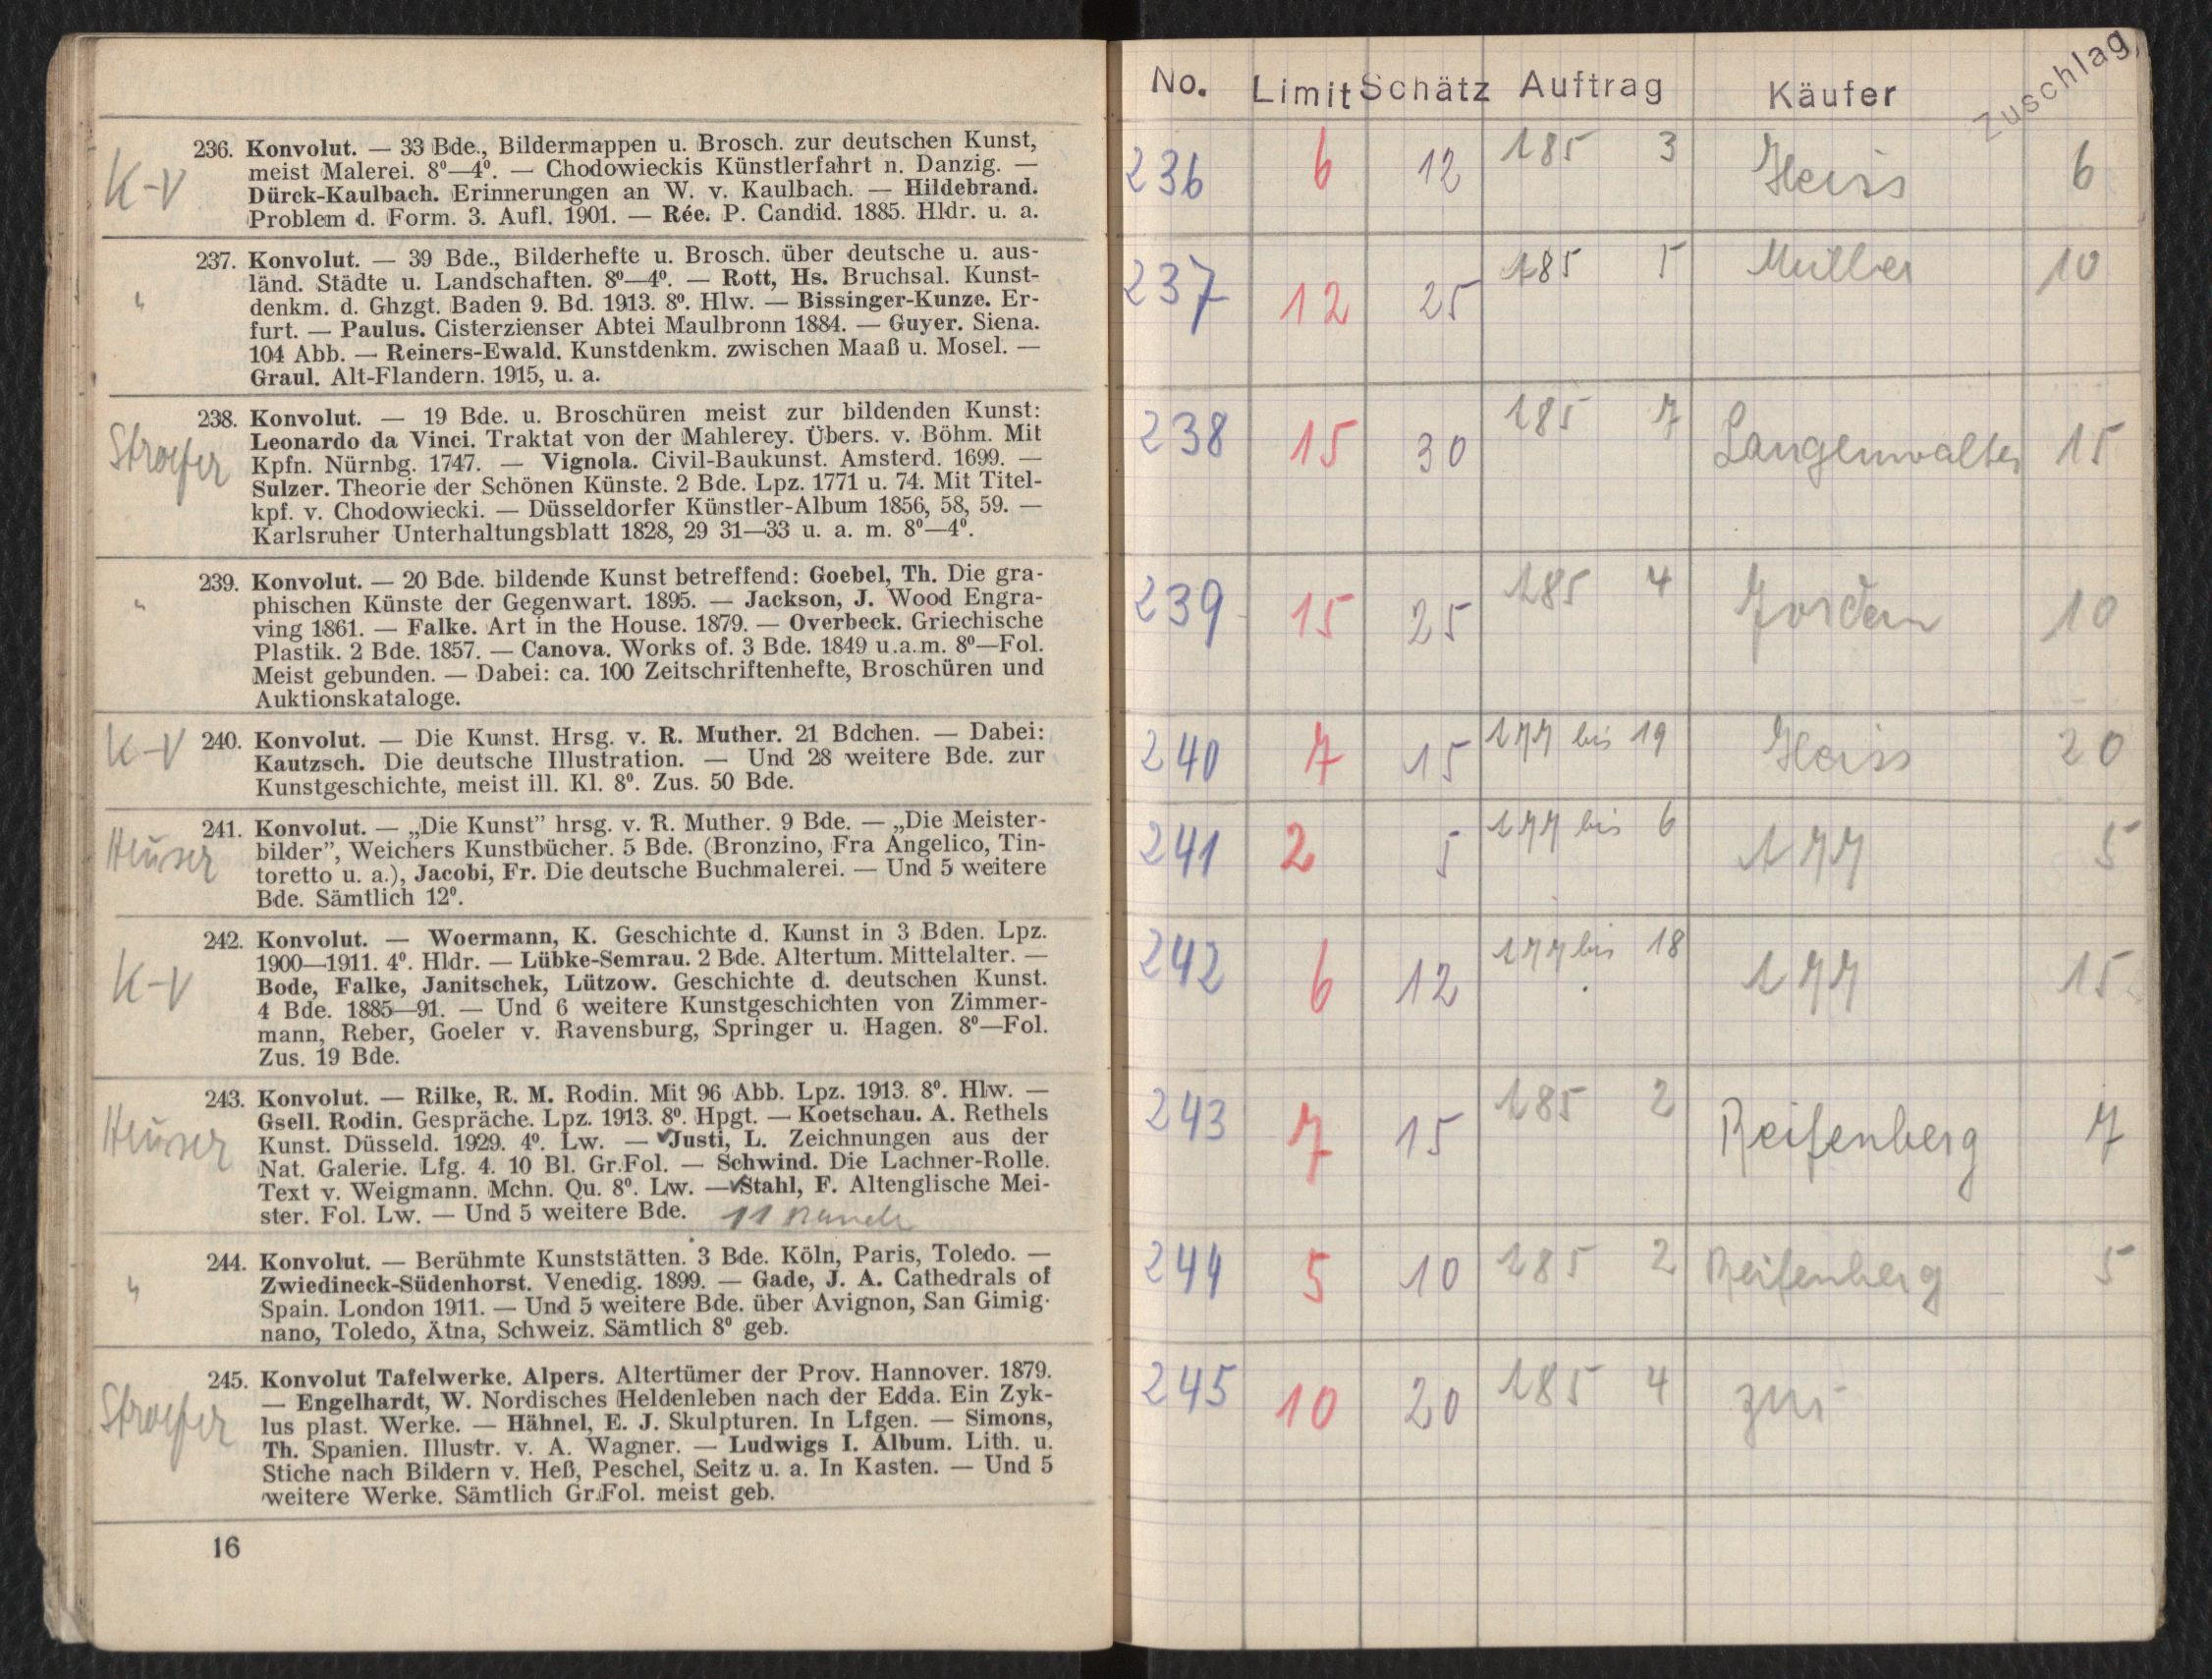 K-V 236. Konvolut. — 33 Bde., Bildermappen u. Brosch. zur deutschen Kunst,
meist Malerei. 8⁰—4⁰. — Chodowieckis Künstlerfahrt n. Danzig. —
Dürck-Kaulbach. Erinnerungen an W. v. Kaulbach. — Hildebrand.
Problem d. Form. 3. Aufl. 1901. — Rée. P. Candid. 1885. Hldr. u. a.
" 237. Konvolut. — 39 Bde., Bilderhefte u. Brosch. über deutsche u. aus-
länd. Städte u. Landschaften. 8⁰—4⁰. — Rott, Hs. Bruchsal. Kunst-
denkm. d. Ghzgt. Baden 9. Bd. 1913. 8⁰. Hlw. — Bissinger-Kunze. Er-
furt. — Paulus. Cisterzienser Abtei Maulbronn 1884. — Guyer. Siena.
104 Abb. — Reiners-Ewald. Kunstdenkm. zwischen Maaß u. Mosel. —
Graul. Alt-Flandern. 1915, u. a.
Stroefer 238. Konvolut. — 19 Bde. u. Broschüren meist zur bildenden Kunst:
Leonardo da Vinci. Traktat von der Mahlerey. Übers. v. Böhm. Mit
Kpfn. Nürnbg. 1747. — Vignola. Civil-Baukunst. Amsterd. 1699. —
Sulzer. Theorie der Schönen Künste. 2 Bde. Lpz. 1771 u. 74. Mit Titel-
kpf. v. Chodowiecki. — Düsseldorfer Künstler-Album 1856, 58, 59. —
Karlsruher Unterhaltungsblatt 1828, 29 31—33 u. a. m. 8⁰—4⁰.
" 239. Konvolut. — 20 Bde. bildende Kunst betreffend: Goebel, Th. Die gra-
phischen Künste der Gegenwart. 1895. — Jackson, J. Wood Engra-
ving 1861. — Falke. Art in the House. 1879. — Overbeck. Griechische
Plastik. 2 Bde. 1857. — Canova. Works of. 3 Bde. 1849 u.a.m. 8⁰—Fol.
Meist gebunden. — Dabei: ca. 100 Zeitschriftenhefte, Broschüren und
Auktionskataloge.
K-V 240. Konvolut. — Die Kunst. Hrsg. v. R. Muther. 21 Bdchen. — Dabei:
Kautzsch. Die deutsche Illustration. — Und 28 weitere Bde. zur
Kunstgeschichte, meist ill. Kl. 8⁰. Zus. 50 Bde.
Heuser 241. Konvolut. — „Die Kunst” hrsg. v. R. Muther. 9 Bde. — „Die Meister-
bilder”, Weichers Kunstbücher. 5 Bde. (Bronzino, Fra Angelico, Tin-
toretto u. a.), Jacobi, Fr. Die deutsche Buchmalerei. — Und 5 weitere
Bde. Sämtlich 12⁰.
K-V 242. Konvolut. — Woermann, K. Geschichte d. Kunst in 3 Bden. Lpz.
1900—1911. 4⁰. Hldr. — Lübke-Semrau. 2 Bde. Altertum. Mittelalter. —
Bode, Falke, Janitschek, Lützow. Geschichte d. deutschen Kunst.
4 Bde. 1885—91. — Und 6 weitere Kunstgeschichten von Zimmer-
mann, Reber, Goeler v. Ravensburg, Springer u. Hagen. 8⁰—Fol.
Zus. 19 Bde.
Heuser 243. Konvolut. — Rilke, R. M. Rodin. Mit 96 Abb. Lpz. 1913. 8⁰. Hlw. —
Gsell. Rodin. Gespräche. Lpz. 1913. 8⁰. Hpgt. — Koetschau. A. Rethels
Kunst. Düsseld. 1929. 4⁰. Lw. — ✓Justi, L. Zeichnungen aus der
Nat. Galerie. Lfg. 4. 10 Bl. Gr.Fol. — Schwind. Die Lachner-Rolle.
Text v. Weigmann. Mchn. Qu. 8⁰. Lw. —✓Stahl, F. Altenglische Mei-
ster. Fol. Lw. — Und 5 weitere Bde. 11
" 244. Konvolut. — Berühmte Kunststätten. 3 Bde. Köln, Paris, Toledo. —
Zwiedineck-Südenhorst. Venedig. 1899. — Gade, J. A. Cathedrals of
Spain. London 1911. — Und 5 weitere Bde. über Avignon, San Gimig-
nano, Toledo, Ätna, Schweiz. Sämtlich 8⁰ geb.
Stroefer 245. Konvolut Tafelwerke. Alpers. Altertümer der Prov. Hannover. 1879.
— Engelhardt, W. Nordisches Heldenleben nach der Edda. Ein Zyk-
lus plast. Werke. — Hähnel, E. J. Skulpturen. In Lfgen. — Simons,
Th. Spanien. Illustr. v. A. Wagner. — Ludwigs I. Album. Lith. u.
Stiche nach Bildern v. Heß, Peschel, Seitz u. a. In Kasten. — Und 5
weitere Werke. Sämtlich Gr.Fol. meist geb.
16
No. Limit Schätz Auftrag Käufer Zuschlag
236 6 12 185 3 Heiss 6
237 12 25 185 5 Müller 10
238 15 30 185 7 Langenwalter 15
239 15 25 185 4 Jordan 10
240 7 15 177 bis 19 Heiss 20
241 2 5 177 bis 6 177 5
242 6 12 177 bis 18 177 15
243 7 15 185 2 Reifenberg 7
244 5 10 185 2 Reifenberg 5
245 10 20 185 4 zur